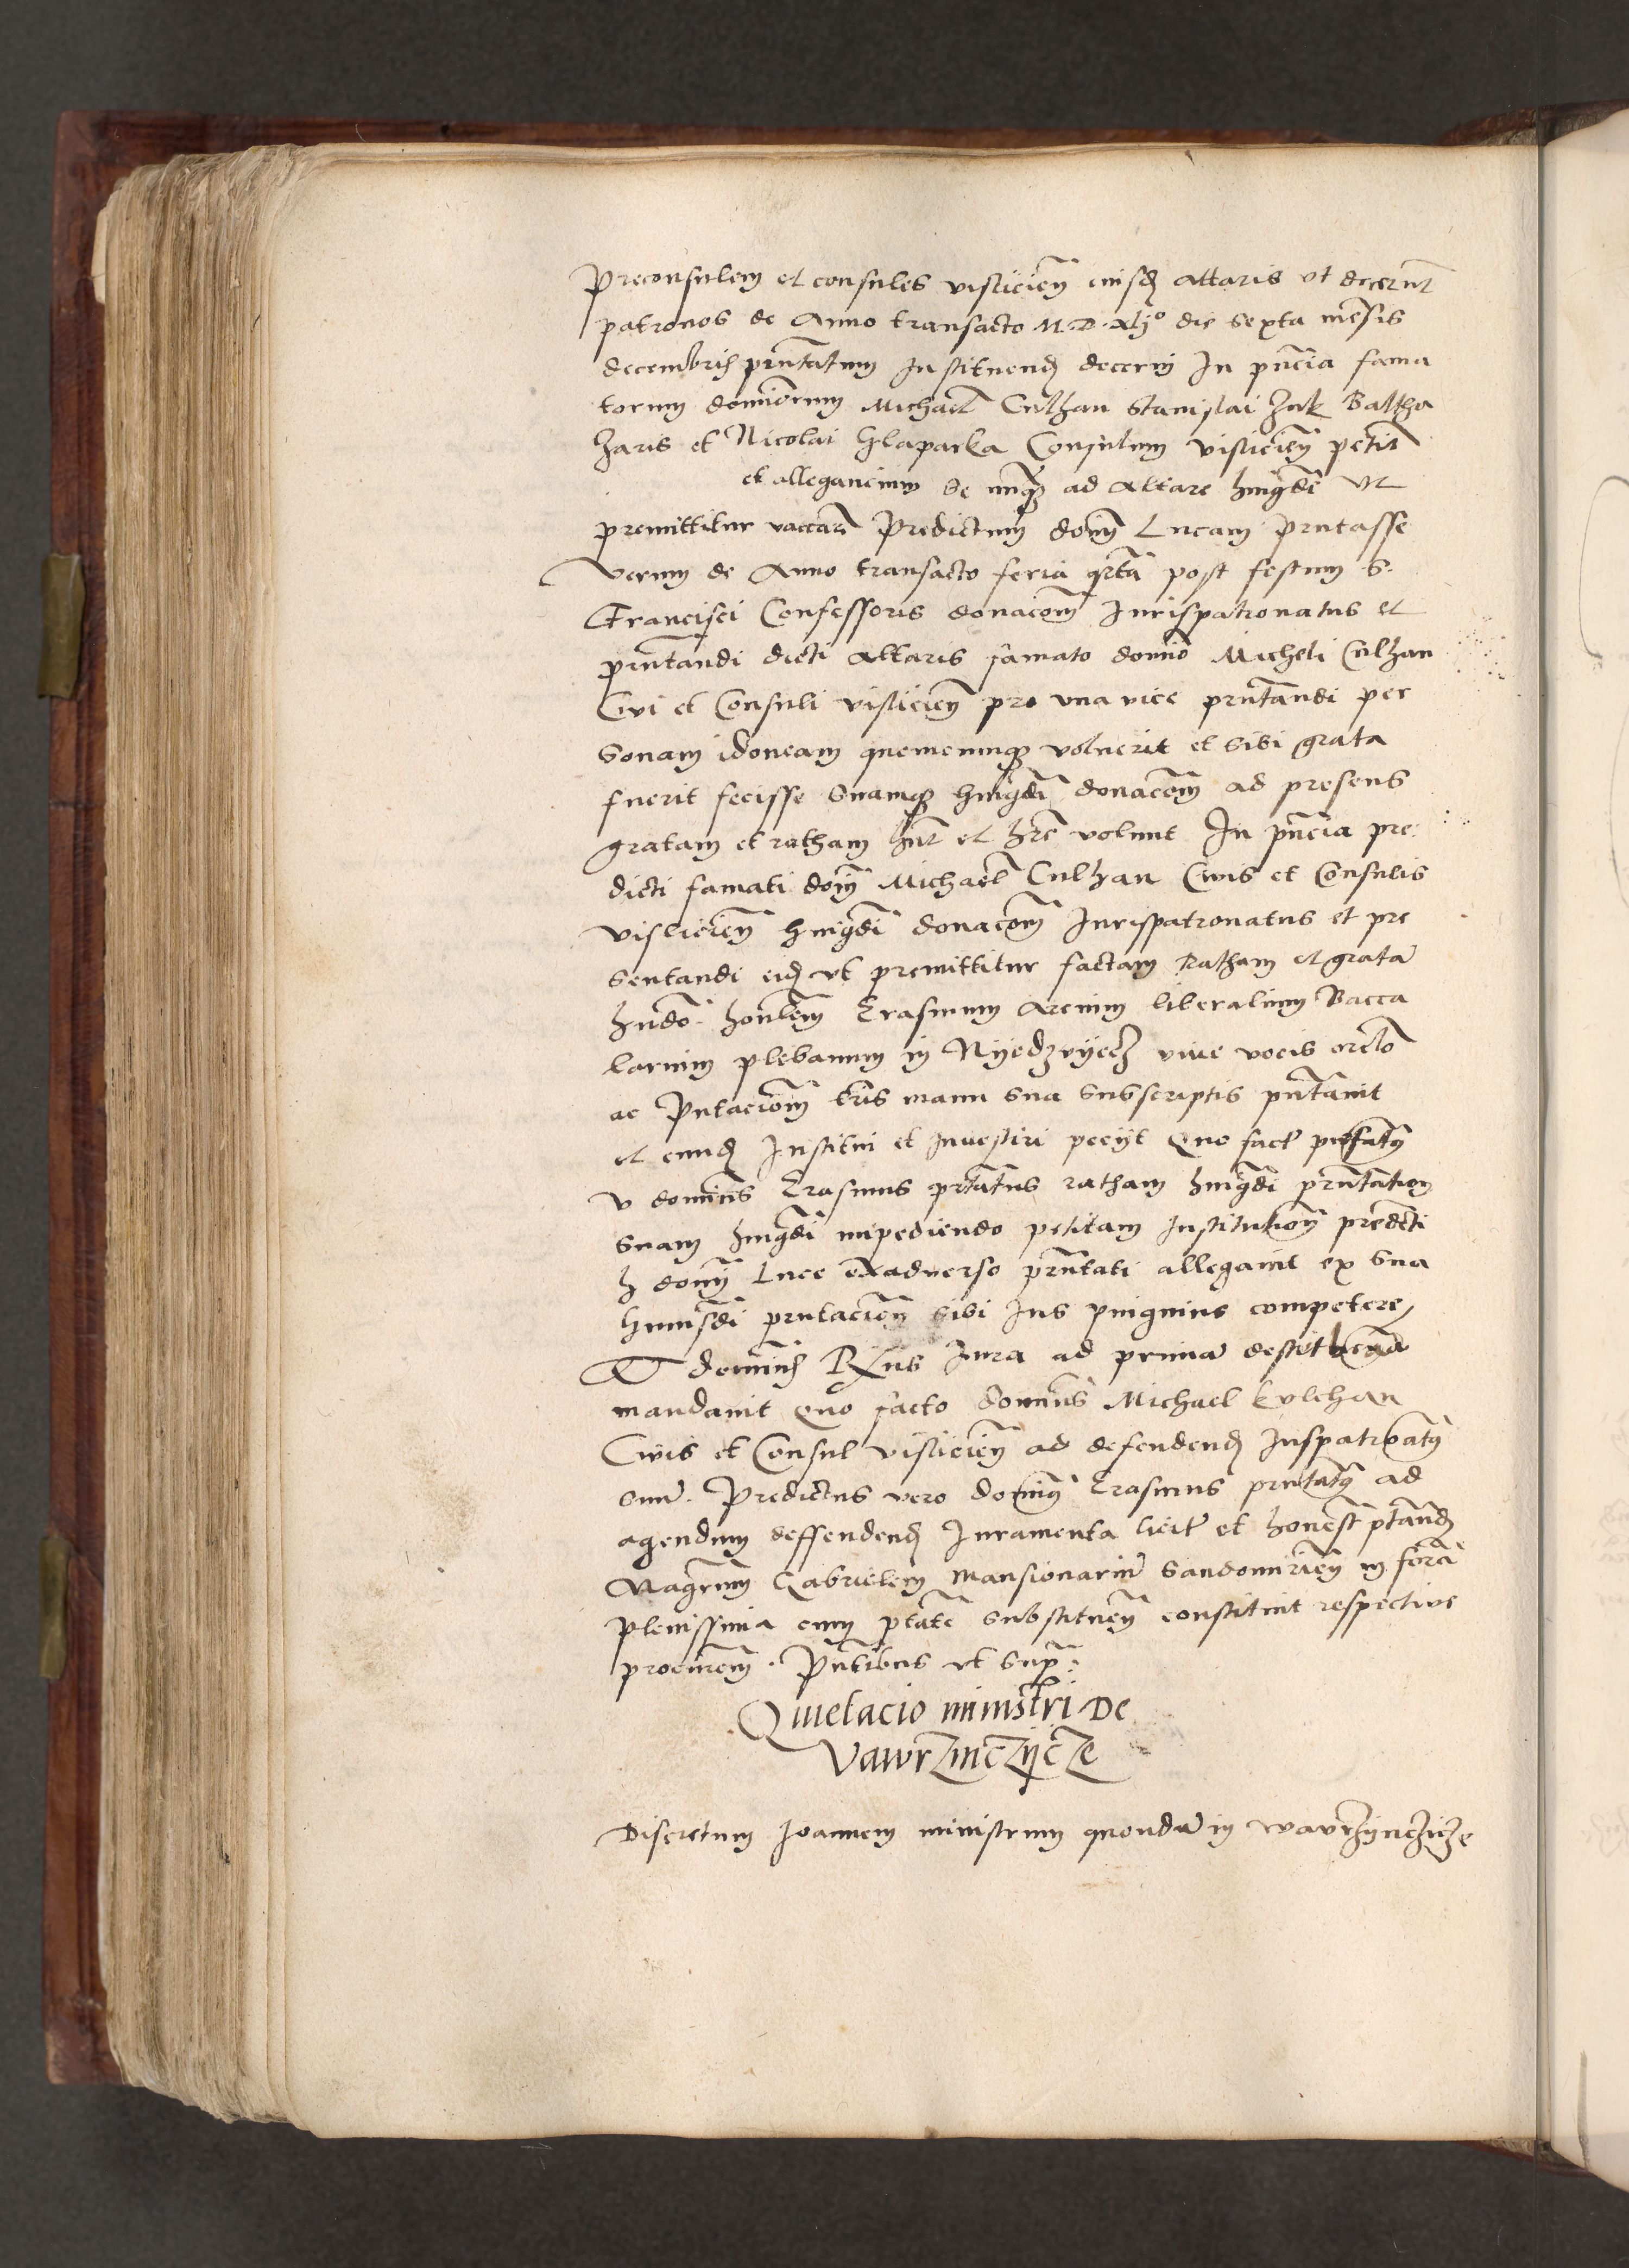 Preconsulem et consules vislicien eiusd altaris ut decernt
patronos de Anno transacto M.D.xlijº die sexta mensis
decembris pntatum Instituend decerni In pncia fama
torum dominorum Michael Culhan Stanislai Zuk Baltha
zaris et Nicolai Chlaparka Consulum vislicien petit
et allegancium se nuqz ad altare hmgdi ut
premittitur vaccan Predictum dom Lucam pntasse
verum de Anno transacto feria qrta post festum S.
Francisci Confessoris donacom Jurispatronatus et
pntandi dicti altaris famato domio Micheli Culhan
Civi et Consuli vislicien pro una vice pntandi per
sonam idoneam quemcumqz voluerit et sibi grata
fuerit fecisse suamqz hmgdi donacom ad presens
gratam et ratham hnt et hre volunt In pncia pre
dicti famati dom Michael Culhan Civis et Consulis
vislicien hmgdi donacom Jurispatronatus et pre
sentandi eid ut premittitur factam Ratham et grata
hndo. honlem Erasmum arcium liberalium Bacca
larium plebanum in Nyedzvyecz vive vocis orclo
ac pntacionem lris manu sua subscriptis pntavit
et eund Institui et Investiri peciit Quo facto prefatus
v dominus Erasmus prntatus ratham hmgdi prntation
suam hmgdi impediendo petitam Institution predicti
h dom Luce exadverso prntati allegavit ex sua
hmsdi prntacion sibi Ius pinguius competere
Et dominus Rxus Jura ad prima destituenda
mandavit Quo facto dominus Michael Kulchan
Civis et Consul vislicien ad defendend Iuspatronatus
suum. Predictus vero dominus Erasmus prntatus ad
agendum deffendend Juramenta licite et honeste ptand
Magrum Gabrielem Mansionarium Sandomirien in forma
plenissima cum ptate substituen constituit respective
procurem. Pntibus ut supra:
Quietacio ministri De
Vawrzinczycze
Discretum Joannem ministrum quondam in Wawrzynczicze